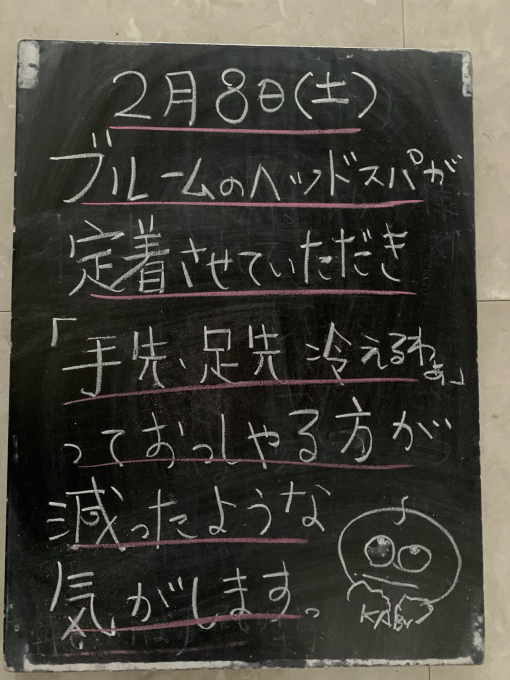 2月8日(土)
ブルームのヘッドスパが
定着させていただき
「手先、足先 冷えるわぁ」
っておっしゃる方が
減ったような
気がします。